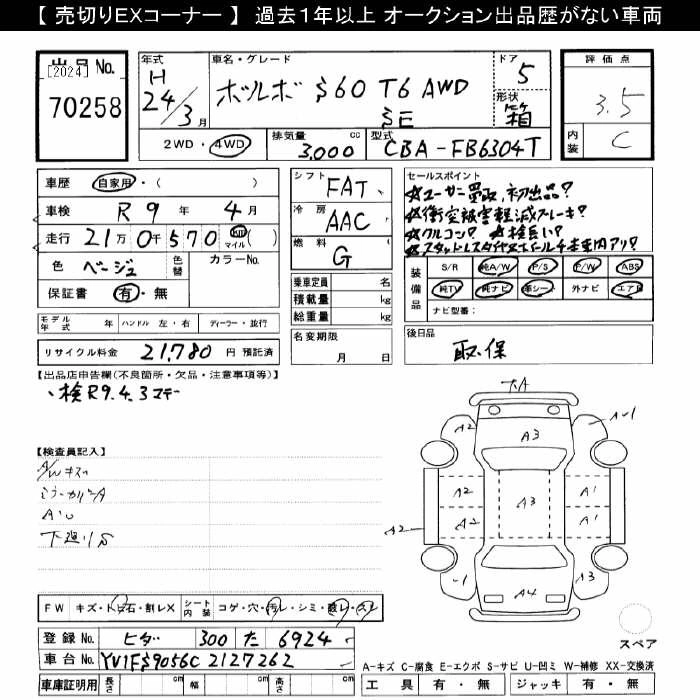 【 売切りEXコーナー 】 過去1年以上 オークション出品歴がない車両
出品No.
[2024]
70258
年式
H
24/3月
車名・グレード
ボルボ S60 T6 AWD
SE
ドア
5
形状
箱
評価点
3.5
内装
C
2WD・4WD
排気量
3,000 cc
型式
CBA-FB6304T
車歴 自家用・( )
車検 R9年 4月
走行 21万0千570 KM マイル( )
色 ベージュ 色替 カラーNo.
保証書 有・無
シフト FAT
冷房 AAC
燃料 G
乗車定員 名
積載量 kg
総重量 kg
名変期限
月 日
セールスポイント
☆ユーザー買取、初出品?
☆衝突被害軽減ブレーキ?
☆クルコン? ☆検長い?
☆スタッドレスタイヤホイール4本車内アリ?
装備品
S/R 純A/W P/S P/W ABS
純TV 純ナビ 革シート 外ナビ エアB
ナビ型番:
モデル年式 年 ハンドル 左・右 ディーラー・並行
リサイクル料金 21,780 円 預託済
後日品
取、保
【出品店申告欄(不良箇所・欠品・注意事項等)】
、検R9.4.3マデー
【検査員記入】
A/Wキズ
ミラーカバーA
下廻りS
A2
A3
A2
A3
A1
A2
A2
A1
A3
A4
FW キズ・トビ石・割レX シート内装 コゲ・穴・汚レ・シミ・破レ・スレ
登録No. ヒダ 300 た 6924
車台No. YV1FS9056C2127262
車庫証明用 長さ cm 幅 cm 高さ cm
スペア
A-キズ C-腐食 E-エクボ S-サビ U-凹ミ W-補修 XX-交換済
工具 有・無 ジャッキ 有・無